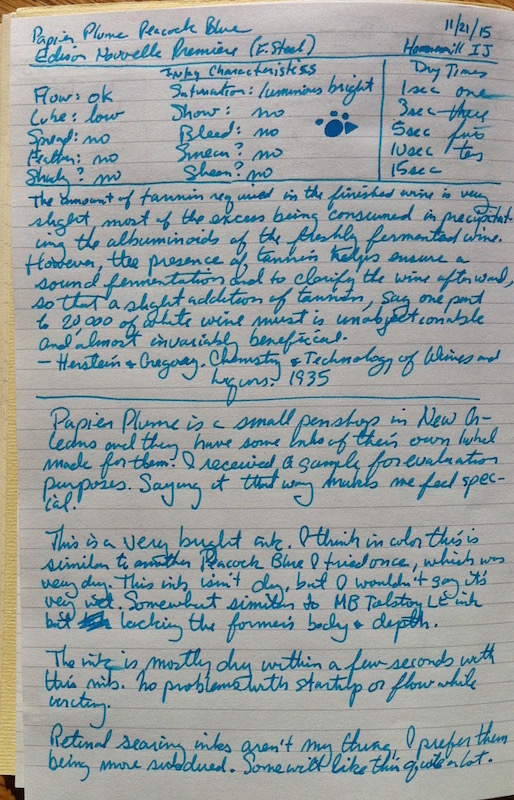 Papier Plume Peacock Blue 11/21/15
Edison Nouvelle Premiere (F. Steel) Hammermill IJ
Inky Characteristics Dry Times
Flow: ok Saturation: luminous bright 1sec one
Lube: low Show: no 3sec three
Spread: no Bleed: no 5sec five
Feather: no Smear? no 10sec ten
Shady? no Sheen? no 15sec
The amount of tannin required in the finished wine is very
slight, most of the excess being consumed in precipitat-
ing the albuminoids of the freshly fermented wine.
However, the presence of tannin helps ensure a
sound fermentation and to clarify the wine afterward,
so that a slight addition of tannin, say one part
to 20,000 of white wine must is unobjectionable
and almost invariably beneficial.
— Herstein & Gregory. Chemistry & Technology of Wines and
Liquors. 1935
Papier Plume is a small penshop in New Or-
leans and they have some inks of their own label
made for them. I received a sample for evaluation
purposes. Saying it that way makes me feel spec-
ial.
This is a very bright ink. I think in color this is
similar to another Peacock Blue I tried once, which was
very dry. This ink isn't dry, but I wouldn't say it's
very wet. Somewhat similar to MB Tolstoy LE ink
but lacking the former's body & depth.
The ink is mostly dry within a few seconds with
this nib. No problems with startup or flow while
writing.
Retinal searing inks aren't my thing, I prefer them
being more subdued. Some will like this quite a lot.